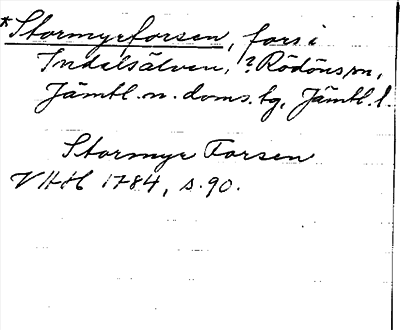 *Stormyrforsen, fors i
Indalsälven, ? Rödöns sn,
Jämtl. n. doms. tg, Jämtl. l.
Stormyr Forsen
VHH 1784, s. 90.